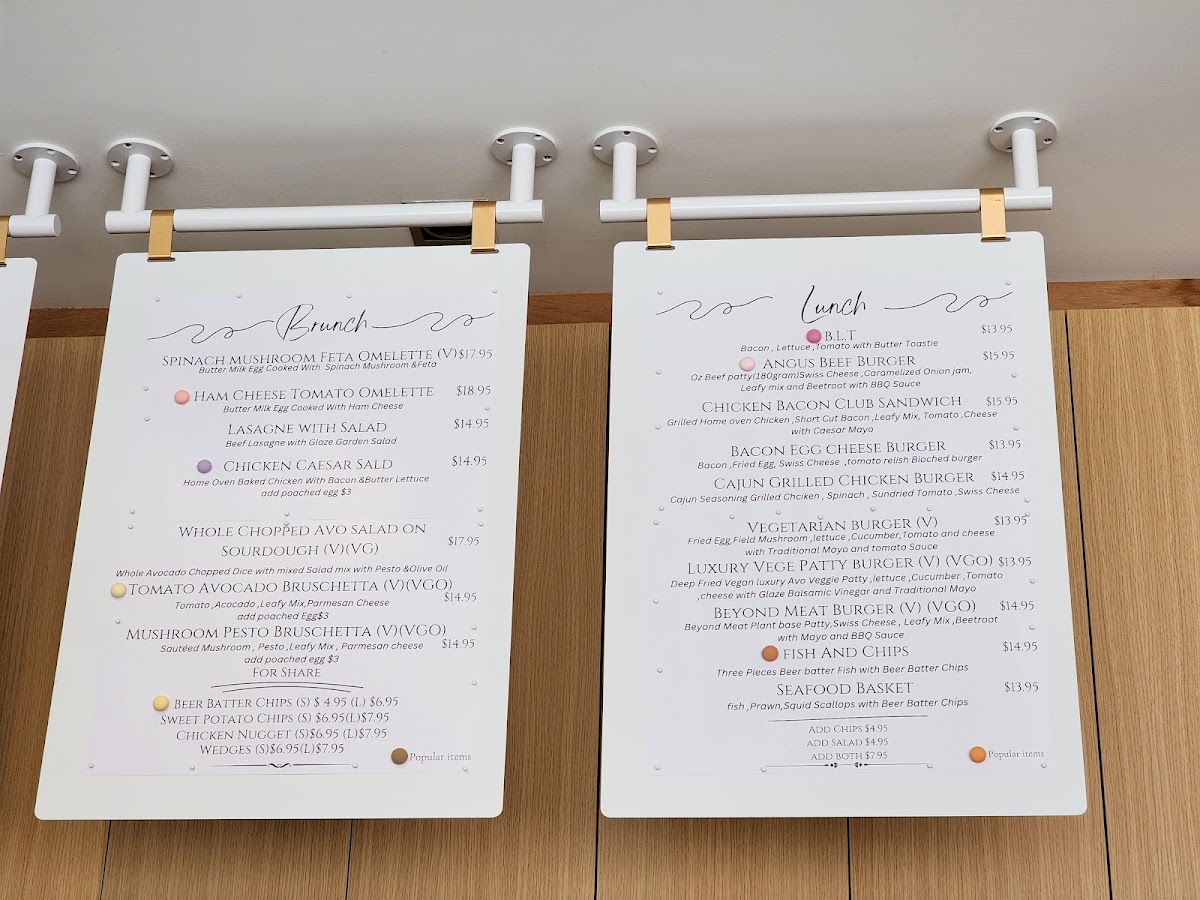 Brunch
Spinach mushroom Feta Omelette (V)$17.95
Butter Milk Egg Cooked With Spinach Mushroom &Feta
Ham Cheese Tomato Omelette $18.95
Butter Milk Egg Cooked With Ham Cheese
Lasagne with Salad $14.95
Beef Lasagne with Glaze Garden Salad
Chicken Caesar Sald $14.95
Home Oven Baked Chicken With Bacon &Butter Lettuce
add poached egg $3
Whole Chopped Avo salad on
Sourdough (V)(VG) $17.95
Whole Avocado Chopped Dice with mixed Salad mix with Pesto &Olive Oil
Tomato Avocado Bruschetta (V)(VGO)
$14.95
Tomato ,Acocado ,Leafy Mix,Parmesan Cheese
add poached Egg$3
Mushroom Pesto Bruschetta (V)(VGO)
Sautéed Mushroom , Pesto ,Leafy Mix , Parmesan cheese $14.95
add poached egg $3
For Share
Beer Batter Chips (S) $ 4.95 (L) $6.95
Sweet Potato Chips (S) $6.95(L)$7.95
Chicken Nugget (S)$6.95 (L)$7.95
Wedges (S)$6.95(L)$7.95
Popular items
Lunch
B.L.T $13.95
Bacon , Lettuce ,Tomato with Butter Toastie
Angus Beef Burger $15.95
Oz Beef patty(180gram)Swiss Cheese ,Caramelized Onion jam,
Leafy mix and Beetroot with BBQ Sauce
Chicken Bacon Club Sandwich $15.95
Grilled Home oven Chicken ,Short Cut Bacon ,Leafy Mix, Tomato ,Cheese
with Caesar Mayo
Bacon Egg cheese Burger $13.95
Bacon ,Fried Egg, Swiss Cheese ,tomato relish Bioched burger
Cajun Grilled Chicken Burger $14.95
Cajun Seasoning Grilled Chciken , Spinach , Sundried Tomato ,Swiss Cheese
Vegetarian Burger (V) $13.95
Fried Egg,Field Mushroom ,lettuce ,Cucumber,Tomato and cheese
with Traditional Mayo and tomato Sauce
Luxury Vege Patty burger (V) (VGO) $13.95
Deep Fried Vegan luxury Avo Veggie Patty ,lettuce ,Cucumber ,Tomato
,cheese with Glaze Balsamic Vinegar and Traditional Mayo
Beyond Meat Burger (V) (VGO) $14.95
Beyond Meat Plant base Patty,Swiss Cheese , Leafy Mix ,Beetroot
with Mayo and BBQ Sauce
Fish And Chips $14.95
Three Pieces Beer batter Fish with Beer Batter Chips
Seafood Basket $13.95
fish ,Prawn,Squid Scallops with Beer Batter Chips
add Chips $4.95
add Salad $4.95
add Both $7.95
Popular items